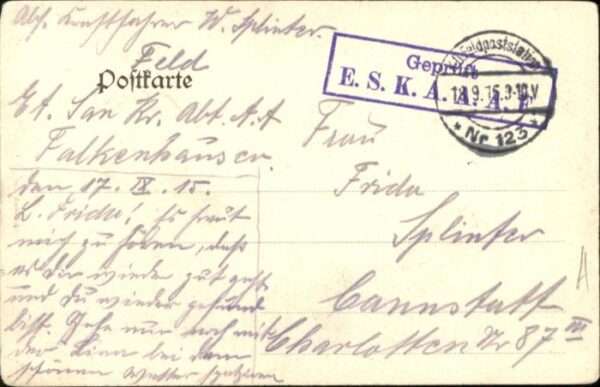 Abs. Kraftfahrer W. Splinter.
Feld
Postkarte
Feldpoststation
Geprüft
E. S. K. A. A. A. F.
18.9.15.9-10.V
* Nr 123 *
Et. San Kr. Abt. A. A
Falkenhausen.
Frau
Frida
Splinter
Cannstatt
Charlotten Nr 87 III
den 17. IX. 15.
L. Fridu! Es freut
mich zu hören, daß
es Dir wieder gut geht
und du wieder gesund
bist. Gehe nur noch mit
der Lina bei dem
schönen Wetter spazieren